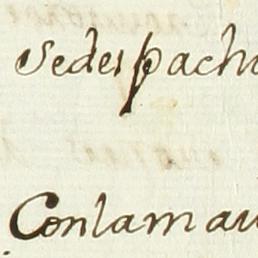 Sedespacho
Conlamau